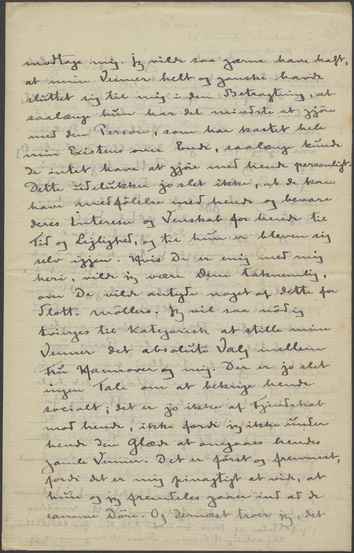 modtage mig. Jeg vilde saa gærne have haft,
at mine Venner helt og ganske havde
sluttet sig til mig i den Betragtning, at
saalæng hun har det mindste at gjöre
med den Person, som har kastet hele
min Existens over Ende, saalæng kunde
de intet have at gjöre med hende personligt.
Dette udelukker jo slet ikke, at de kan
have medfölelse med hende og bevare
deres Interesse og Venskab for hende til
Tid og Lejlighed, og til hun er bleven sig
selv igjen. Hvis De er enig med mig
heri, vilde jeg være Dem taknemlig,
om De vilde antyde noget af dette for
Slott-Möllers. Jeg vil saa nödig
tvinges til kategorisk at stille mine
Venner det absolute Valg mellem
fru Hannover og mig. Der er jo slet
ingen Tale om at bekrige hende
socialt; det er jo ikke af Fjendskab
mod hende, ikke fordi jeg ikke under
hende den Glæde at omgaaes hendes
gamle Venner. Det er först og fremmest,
fordi det er mig pinagtigt at vide, at
hun og jeg fremdeles gaar ind ad de
samme Döre. Og dernæst troer jeg, det